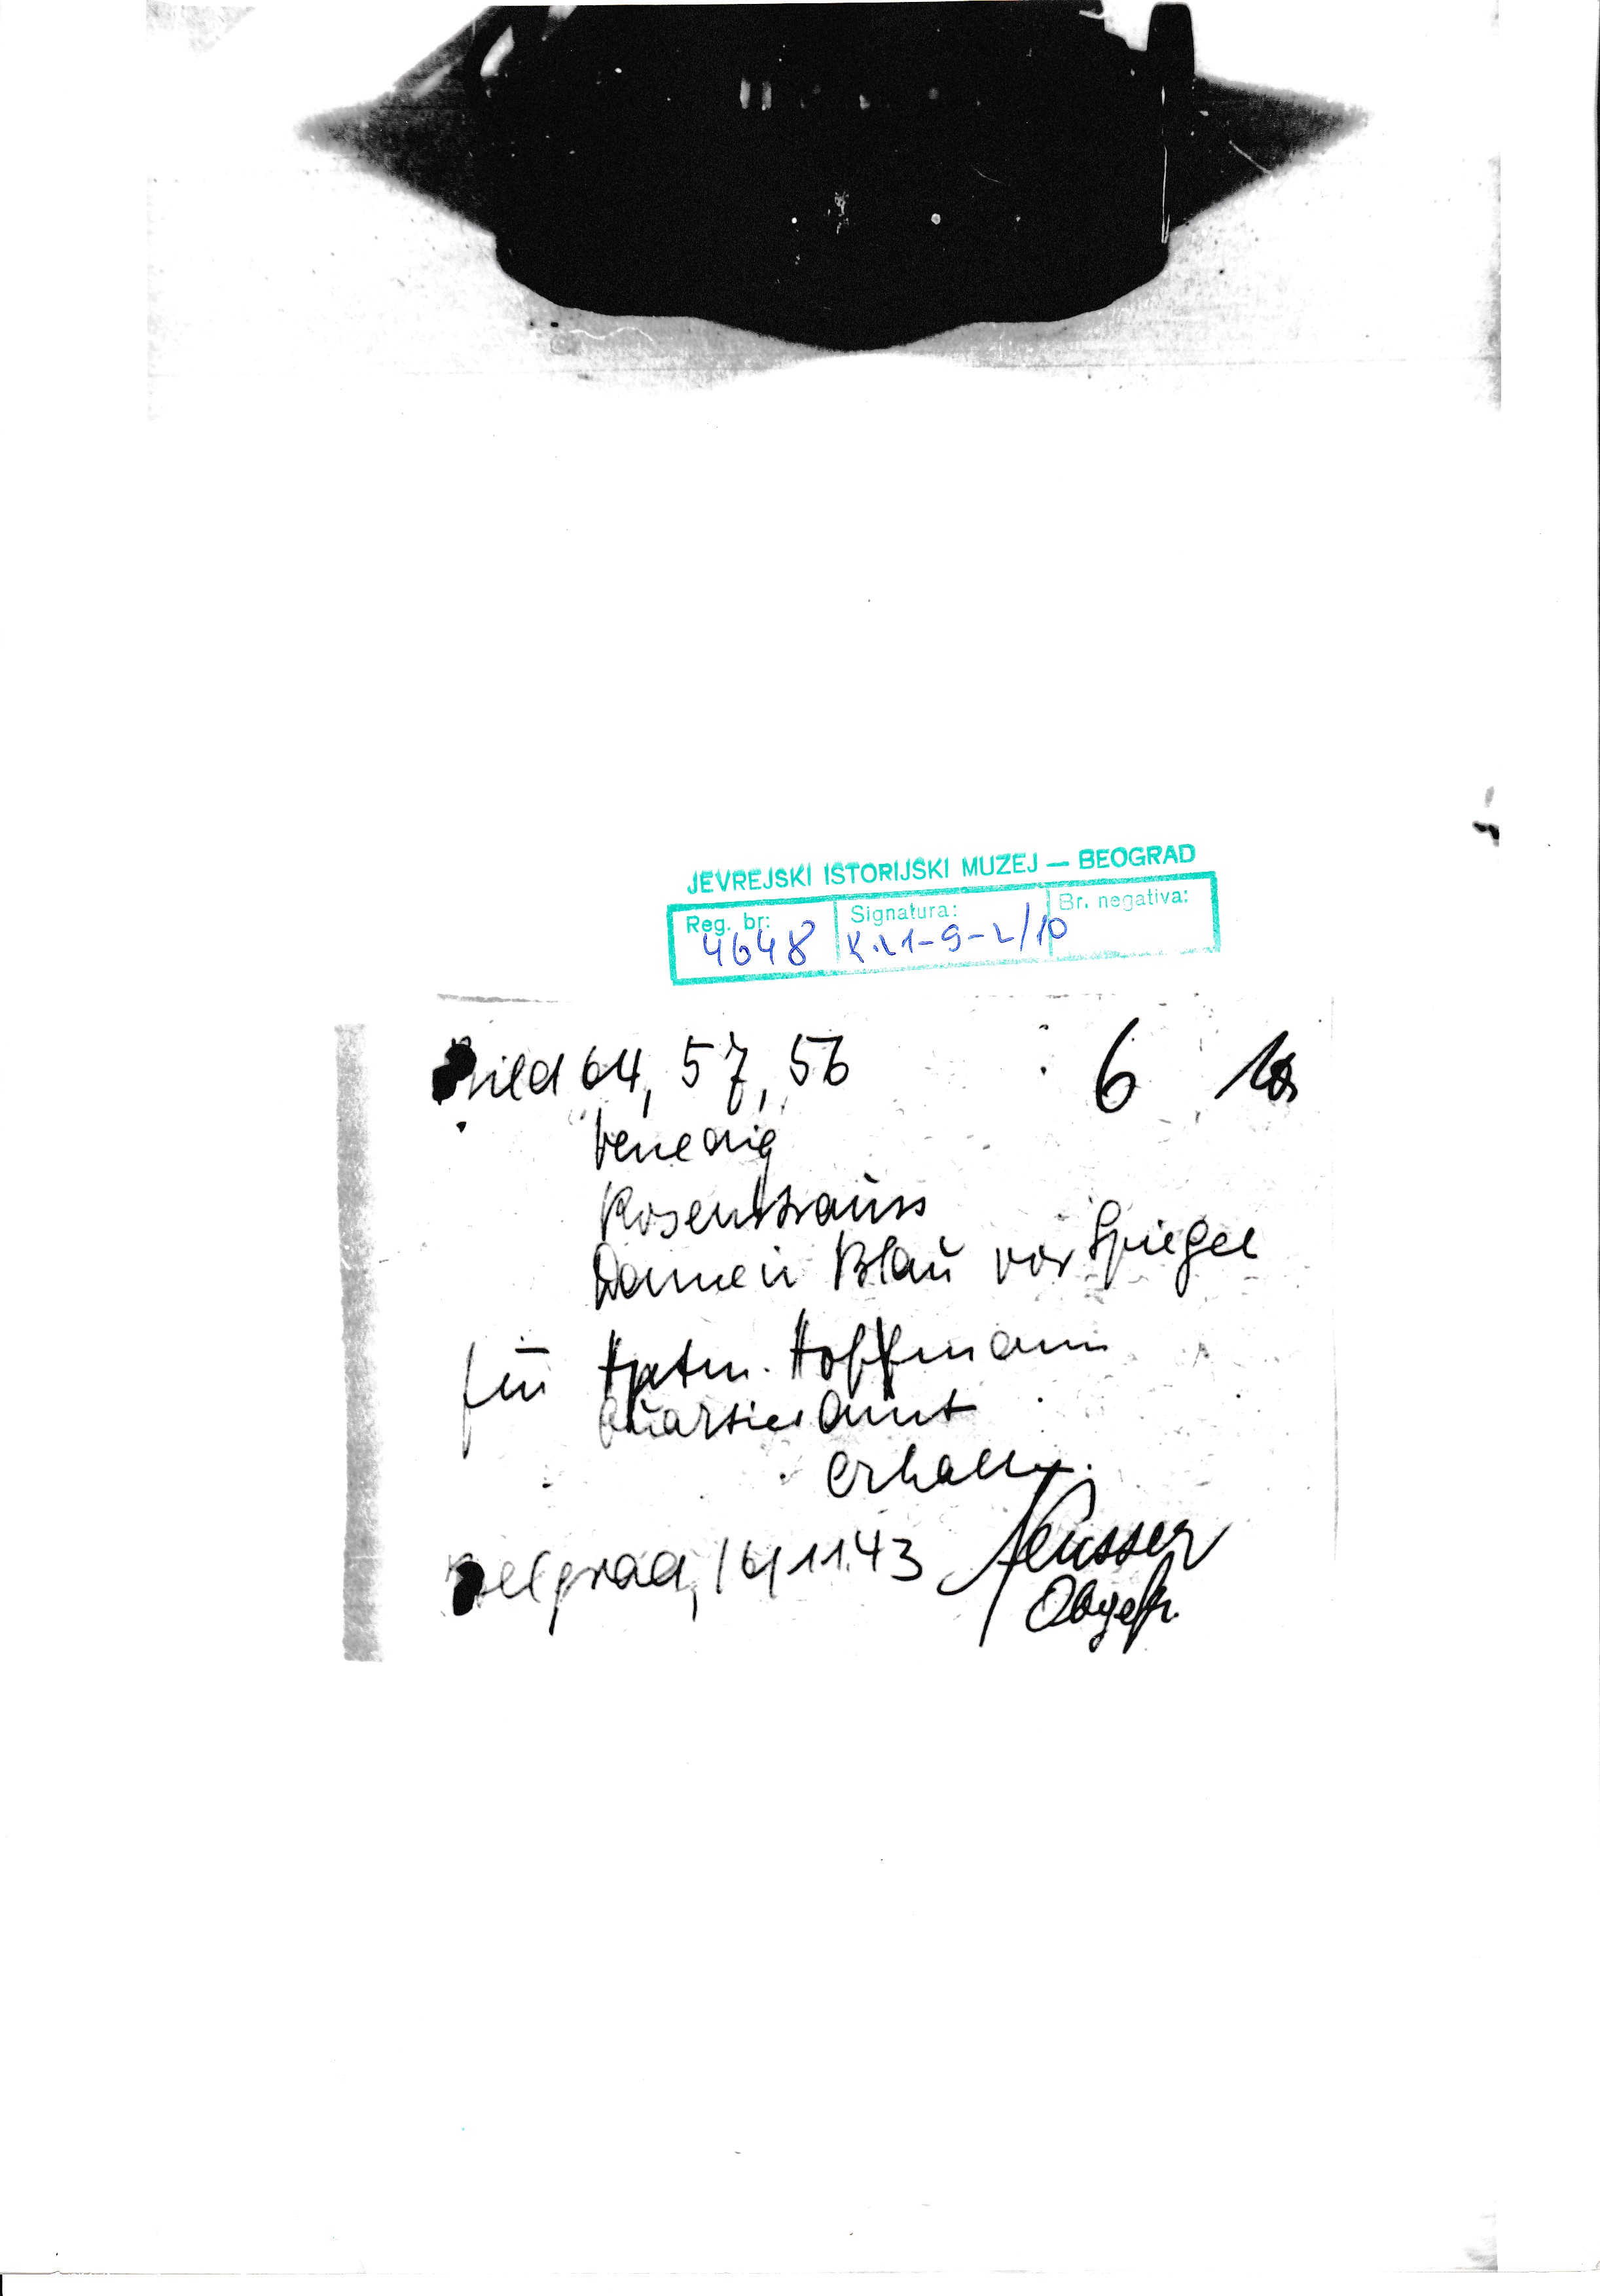 JEVREJSKI ISTORIJSKI MUZEJ — BEOGRAD
Reg. br: Signatura: Br. negativa:
4648 K.21-9-2/10
Bild 64, 57, 56 6
Venedig
Rosenstrauss
Dame in Blau vor Spiegel
für Hptm. Hoffmann
Quartieramt
erhalten.
Belgrad, 16/11.43 Neusser
Obgefr.